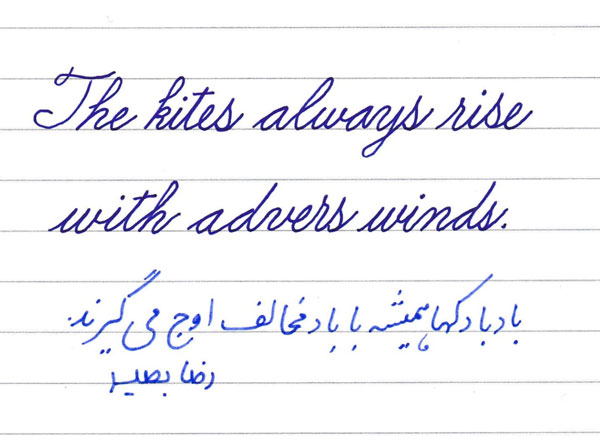 The kites always rise
with advers winds.
بادبادکها همیشه با باد مخالف اوج می گیرند.
رضا بصیر